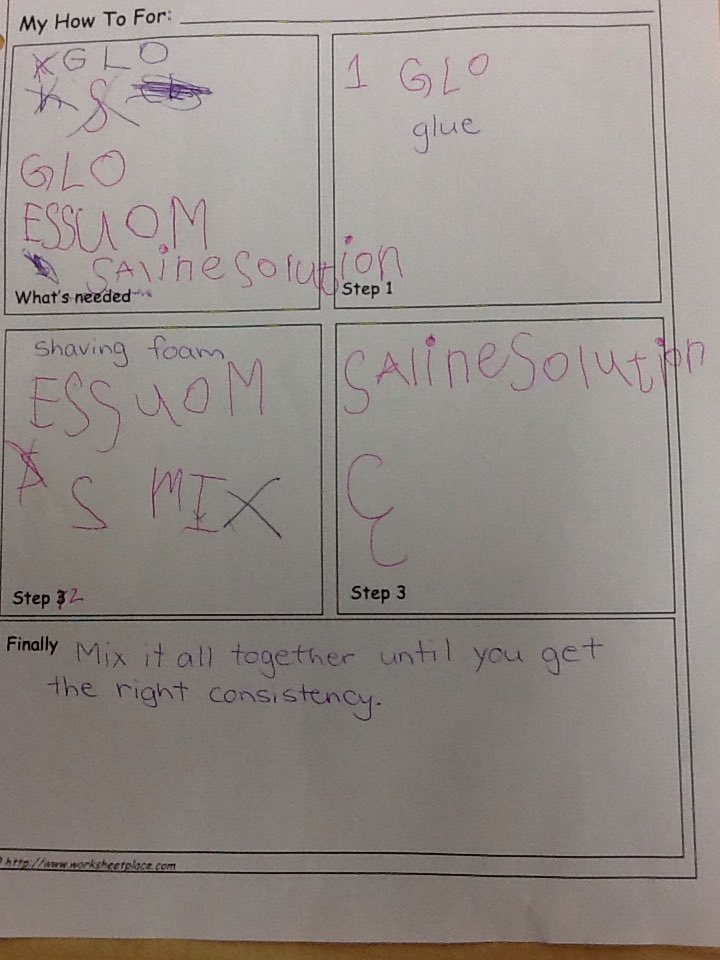 My How To For:
GLO
GLO
ESSUOM
Saline Solution
What's needed
1 GLO
glue
Step 1
shaving foam
ESSUOM
S MIX
Step 2
Saline Solution
Step 3
Finally Mix it all together until you get
the right consistency.
http://www.worksheetplace.com